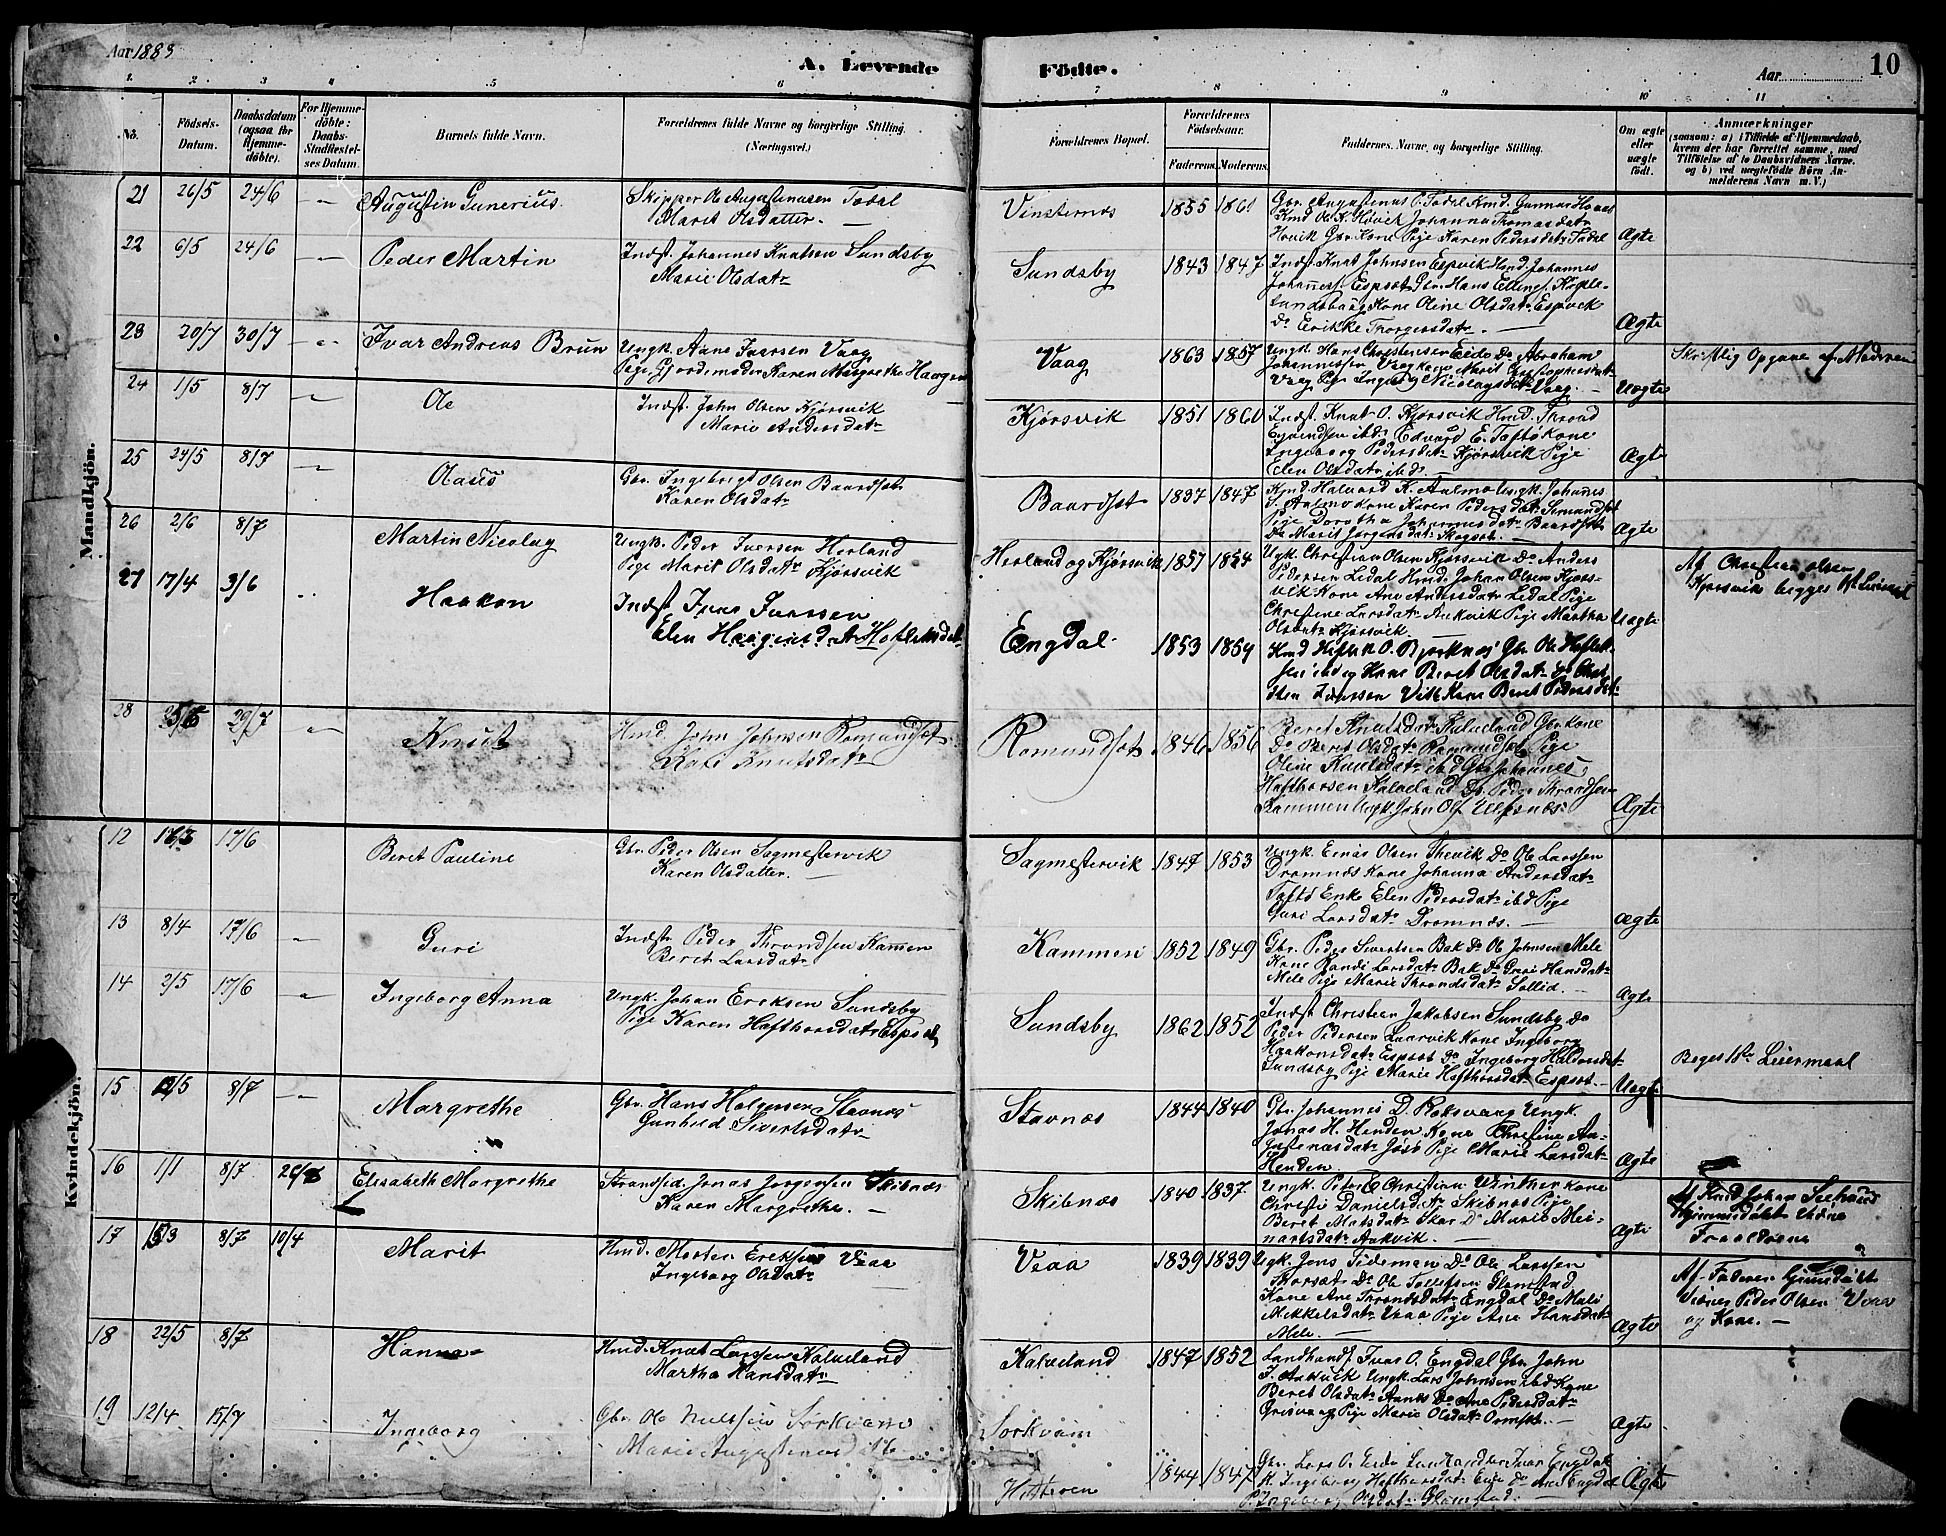 Aar 1883
A. Levende
Födte.
Aar
10
1.
2
3
4
5
6
7
8
9
10
11
No.
Födsels-
Datum.
Daabsdatum
(ogsaa for
Hjemme-
döbte).
For Hjemme-
döbte:
Daabs-
Stadfæstel-
ses Datum.
Barnets fulde Navn.
Forældrenes fulde Navne og borgerlige Stilling.
(Næringsvei.)
Forældrenes Bopæl.
Forældrenes
Födselsaar.
Faderens.
Moderens.
Faddernes Navne og borgerlige Stilling.
Om ægte
eller
uægte
födt.
Anmærkninger
(saasom: a) i Tilfælde af Hjemmedaab,
hvem der har forrettet samme, med
Tilföielse af to Daabsvidners Navne.
og b) ved uægtefödte Börn An-
melderens Navn m. V.)
Mandkjön.
21 26/5 24/6 Augustin Gunerius.
Skipper Ole Augustinusen Todal
Marit Olsdatter.
Vinsternes 1855 1861
Gbr. Augustenus P. Todal Kmd. Gunnar
Kmd Ole K. Hovik Johanna Thomasdatr
Hovik Gbr. Kone Pige Karen Pedersdatr Todal
Ægte
22 6/5 24/6 Peder Martin
Indst. Johannes Knutsen Sundsby
Marie Olsdatr
Sundsby 1843 1847
Indst. Knut Johnsen Espvik Hmd. Johannes
Johannes. Espset Gbr. Hans Ellings.
Sundsby Kone Oline Olsdatr Espvik
Do Erikke Thorgersdatr.
Ægte
23 20/7 30/7 Ivar Andreas Brun
Ungk. Aane Iversen Vaag
Pige Gjordemoder Karen Margrethe Haagen
Vaag 1863 1857
Ungk. Hans Christensen Eide Do Abraham
Johannessen Vaag Kone Marit Christophersdatr
Vaag Pige Ingeborg Nicolaysdatr Vaag.
Uægte
Skriftlig Opgave af Moderen
24 1/5 8/7 Ole
Indst. John Olsen Kjørsvik
Marie Andersdatr
Kjørsvik 1851 1860
Indst. Knut O. Kjørsvik Hmd. Thrond
ibd. Edvard E. Taftø Kone
Ingeborg Pedersdatr Kjørsvik Pige
Elen Olsdatr ibd.
Ægte
25 24/5 8/7 Olaus
Gbr. Ingebrigt Olsen Baardset
Karen Olsdatr
Baardset 1837 1847
Kmd. Halvard K. Aalmo Ungk. Johanes
I. Aalmo Kone Karen Pedersdatr
Pige Dorothea Johannesdatr Baardset
Do Marit Jørgensdatr Skogset.
Ægte
26 2/6 8/7 Martin Nicolay
Ungk. Peder Iversen Herland
Pige Marit Olsdatr Kjørsvik
Herland og Kjørsvik 1857 1854
Ugk. Christian Olsen Kjørsvik Do Anders
Pedersen Ledal Hmd. Johan Olsen Kjørs-
vik Kone Ane Andersdatr Ledal Pige
Christine Larsdatr Aukvik Pige Martha
Olsdatr Kjørsvik.
Uægte
Af Christian Olsen
Kjørsvik begges 1ste Leiermaal
27 17/4 3/6 Haakon
Indst Ivar Iversen
Elen Haagensd
Engdal. 1853 1854
Kmd Hoften O. Bjerknes Gbr Ole
sen ibd og Kone Beret Olsdatr
sten Iversen Kone Beret Pedersdatr
28 29/7 Knut
Hmd. John Johnsen Romundset
Kari Knutsdatr
Romundset 1846 1856
Beret Knutsdatr Kalveland Gbr. Kone
Do Beret Olsdatr Romundset Pige
Oline Knutsdatr ibd Gbr Johannes
Hafthorsen Kalveland Do Peder Throndsen
Kammen Ungk. John Ols. Ulfsnes
Ægte
Kvindekjön.
12 17/6 Beret Pauline
Gbr. Peder Olsen Sagmestervik
Karen Olsdatter.
Sagmestervik 1847 1853
Ungk. Einas Olsen Thevik Do Ole Larssen
Dromnæs Kone Johanna Andersdatr
Taftø Enke Elen Pedersdatr ibd Pige
Guri Larsdatr Dromnæs.
Ægte
13 8/4 17/6 Guri
Indstr. Peder Throndsen Kammen
Beret Larsdatr
Kammen 1852 1849
Gbr. Peder Sivertsen Bak Do Ole Johnsen Mele
Kone Randi Larsdatr Bak Do Guri Hansdatr
Mele Pige Marie Throndsdatr Sollid.
Ægte
14 2/5 17/6 Ingeborg Anna
Ungk. Johan Eriksen Sundsby
Pige Karen Hafthorsdatr Espset
Sundsby 1862 1852
Indst Christian Jakobsen Sundsby Do
Peder Pedersen Laarvik Kone Ingeborg
Haakonsdatr Espset Do Ingeborg Haldorsdatr
Sundsby Pige Marie Hafthorsdatr Espset.
Uægte
Beges 1ste Leiermaal
15 12/5 8/7 Margrethe
Gbr. Hans Halgersen Stavnæs
Gunhild Sivertsdatr
Stavnæs 1844 1840
Gbr. Johannes D. Roksvaag Ungk.
Jonas H. Henden Kone Christine Au-
gustenasdatr Jøsø Pige Marie Larsdatr
Henden
Ægte
16 1/1 8/7 Elisabeth Margrethe
Strandsid. Jonas Jørgensen Skibnæs
Karen Margrethe.
Skibnæs 1840 1837.
Ungk. Peter E Christian Winther Kone
Christi Danielsdtr Skibnæs Pige
Beret Matsdatr Skar Do Marie Mei-
nartsdatr Aukvik.
Ægte
Af Kmd Johan
Hjemmedøbt Vidne
Forældrene
17 8/7 10/4 Marit
Hmd. Morten Eriksen Veaa
Ingeborg Olsdatr
Veaa 1839 1839
Ugk. Jens Tideman Do Ole Larssen
Thorset Do Ole Tollefsen Glomstad
Kone Ane Throndsdatr Engdal Do Mali
Mikkelsdatr Veaa Pige Ane Hansdatr
Mele.
Ægte
Af Faderen Hjemdøbt
Vidner Peder Olsen Veaa
og Kone.
18 22/5 8/7 Hanna
Hmd. Knut Larssen Kalveland
Martha Hansdatr
Kalveland 1847 1852
Landhand. Ivar O. Engdal Gbr. John
I. Aukvik Ungk Lars Johnsen ibd Kone
Beret Olsdatr Aukv. Do Ane Pedersdatr
Grisvaag Pige Marie Olsdatr
Ægte
19 12/4 15/7 Ingeborg
Gbr. Ole Nielssen Sørkvam
Marie Augustenasdatter
Sørkvam
1844 1847
Gbr. Lars O. Eide Landhandler Ivar Engdal
K. Ingeborg Hafthorsdatr Eide Do Ane Engdal
P. Ingeborg Olsdatr Glomstad.
Ægte